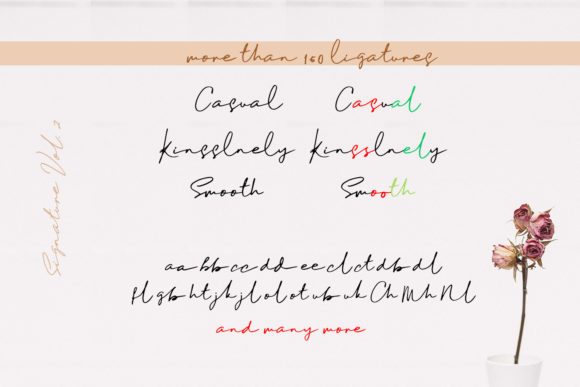 more than 160 ligatures
Casual Casual
Kinsslnely Kinsslnely
Smooth Smooth
Signature Vol. 2
aa bb cc dd ee cl ct db dl
fl gb ht jk jl ol ot ub uk Ch Mh Nl
and many more